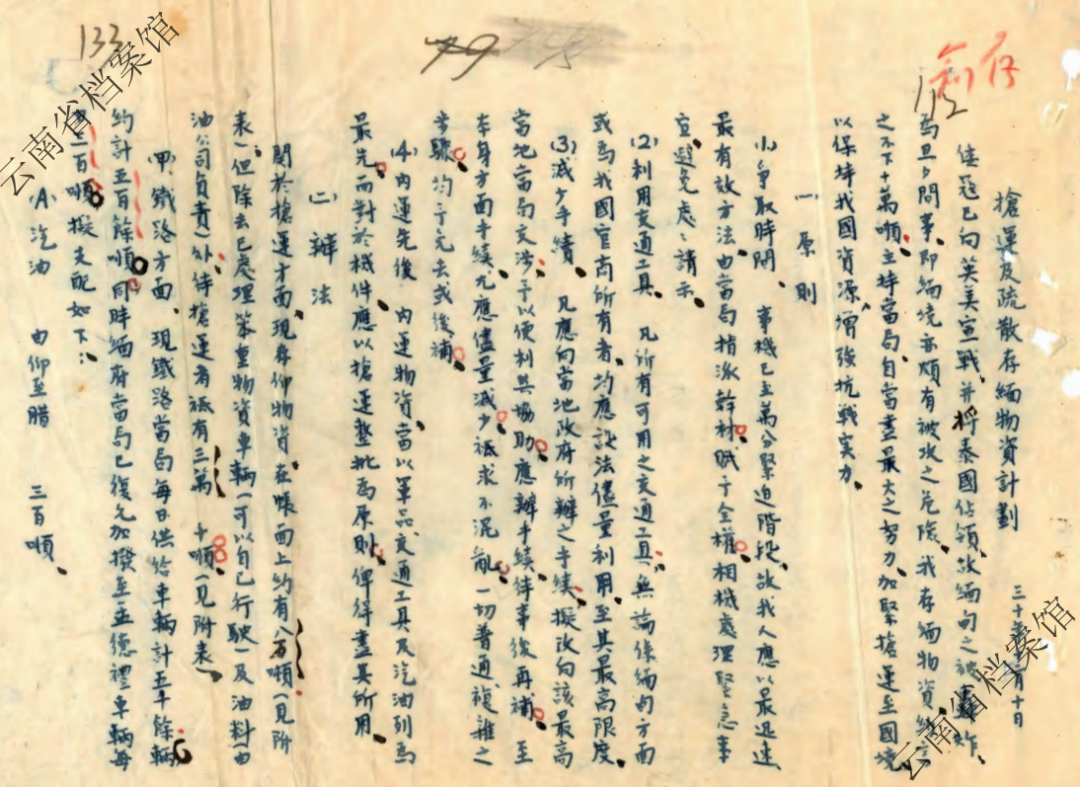 133
112
搶運及疏散存緬物資計劃
三十年十二月十日
倭寇已向英美宣戰、并將泰國佔領、故緬甸之被轟炸、
為旦夕問事、即緬境亦頗有被攻之危險、我存緬物資約
之不下十萬噸、主持當局、自當盡最大之努力、加緊搶運至國境、
以保持我國資源、增強抗戰实力、
一 原則
⑴爭取時間、 事機已至萬分緊迫階段、故我人應以最迅速、
最有效方法、由當局指派幹材、賦予全權、相機處理緊急事
宜、避免處處請示、
⑵利用交通工具、 凡所有可用之交通工具、無論係緬甸方面
或為我國官商所有者、均應設法儘量利用、至其最高限度、
⑶減少手續、 凡應向當地政府所辦之手續、擬改向該最高
當地當局交涉、予以便利與協助、應辦手續、俟事後再補、至
本身方面手續、尤應儘量減少、祗求不混亂、一切普通複雜之
步驟、均予免去或後補、
⑷內運先後 內運物資、當以軍品、交通工具及汽油列為
最先、而對於機件、應以搶運整批為原則、俾得盡其所用、
二 辦法
関於搶運方面、現存仰物資、在帳面上約有八万噸(見附
表)但除去已處理笨重物資車輛(可以自己行駛)及油料(由
油公司負責)外、待搶運者祗有三萬 千噸(見附表)、
㈥鐵路方面、現鐵路當局每日供給車輛計五十餘輛、
約計五百餘噸、同時緬府當局已復允加撥至孟德禮車輛每
一百噸、擬支配如下:
(A)汽油 由仰至腊 三百噸、
云南省档案馆
云南省档案馆